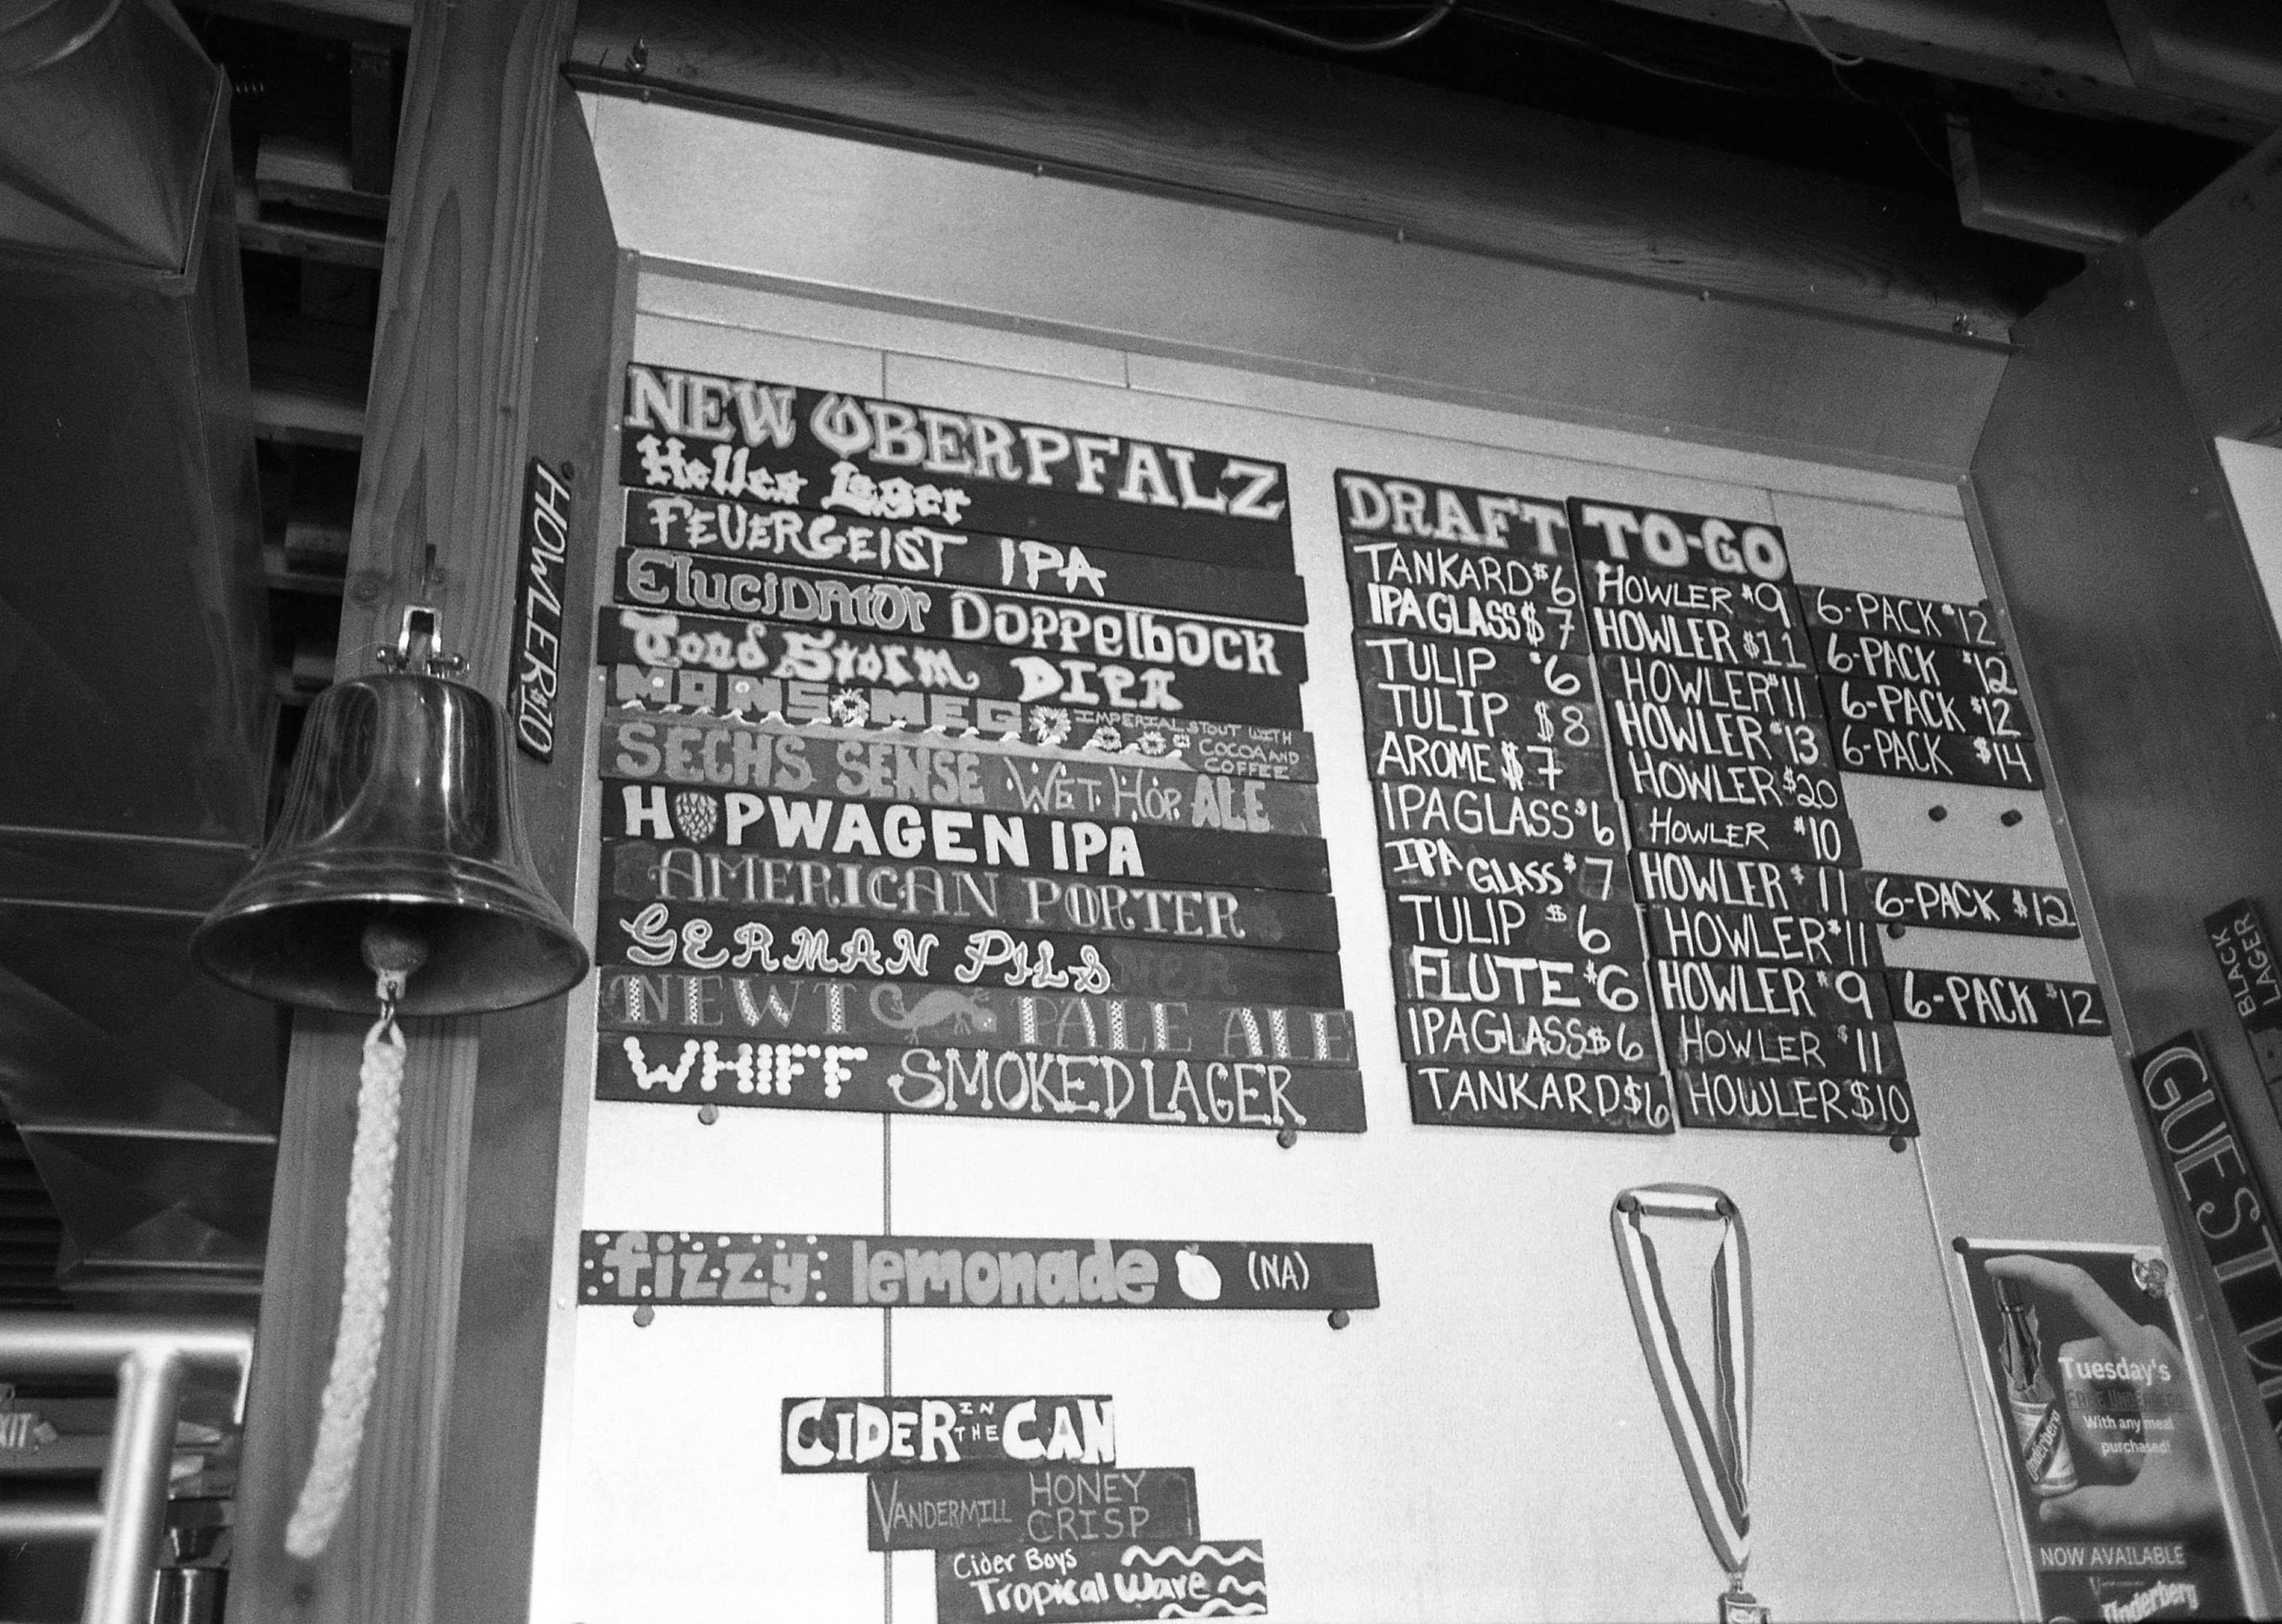 NEW OBERPFALZ
Helles Lager
FEUERGEIST IPA
ElucidAtor Doppelbock
Toad Storm DIPA
MANS MEG IMPERIAL STOUT WITH
COCOA AND
COFFEE
SECHS SENSE WET HOP ALE
HOPWAGEN IPA
AMERICAN PORTER
GERMAN PILS
NEWT PALE ALE
WHIFF SMOKED LAGER
DRAFT TO-GO
TANKARD $6 HOWLER $9 6-PACK $12
IPA GLASS $7 HOWLER $11 6-PACK $12
TULIP $6 HOWLER $11 6-PACK $12
TULIP $8 HOWLER $13 6-PACK $14
AROME $7 HOWLER $20
IPA GLASS $6 HOWLER $10
IPA GLASS $7 HOWLER $11 6-PACK $12
TULIP $6 HOWLER $11
FLUTE $6 HOWLER $9 6-PACK $12
IPA GLASS $6 HOWLER $11
TANKARD $6 HOWLER $10
HOWLER $10
fizzy lemonade (NA)
CIDER IN THE CAN
VANDERMILL HONEY
CRISP
Cider Boys
Tropical Wave
BLACK
LAGER
GUEST
Tuesday's
With any meal
purchased!
Underberg
NOW AVAILABLE
Underberg
XIT